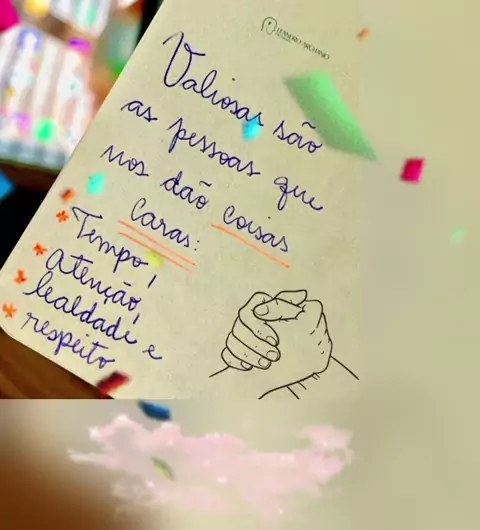 LEANDRO ARCHANJO
Valiosas são
as pessoas que
nos dão coisas
caras:
* Tempo,
* atenção,
* lealdade e
* respeito